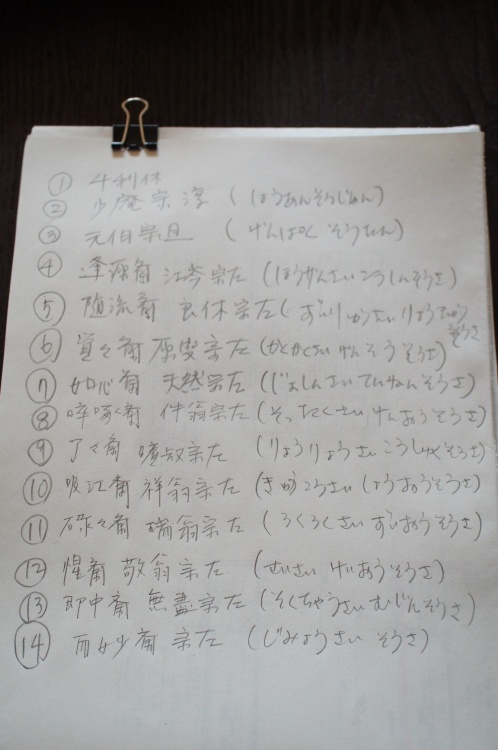 ① 千利休
② 少庵宗淳 (しょうあんそうじゅん)
③ 元伯宗旦 (げんぱく そうたん)
④ 逢源斎 江岑宗左 (ほうげんさい こうしんそうさ)
⑤ 随流斎 良休宗左 (ずいりゅうさい りょうきゅう
そうさ
⑥ 覚々斎 原叟宗左 (かくかくさい げんそう そうさ)
⑦ 如心斎 天然宗左 (じょしんさい てんねんそうさ)
⑧ 啐啄斎 件翁宗左 (そったくさい けんおうそうさ)
⑨ 了々斎 曠叔宗左 (りょうりょうさい こうしゅくそうさ)
⑩ 吸江斎 祥翁宗左 (きゅうこうさい しょうおうそうさ)
⑪ 碌々斎 瑞翁宗左 (ろくろくさい ずいおうそうさ)
⑫ 惺斎 敬翁宗左 (せいさい けいおうそうさ)
⑬ 即中斎 無盡宗左 (そくちゅうさい むじんそうさ)
⑭ 而妙斎 宗左 (じみょうさい そうさ)